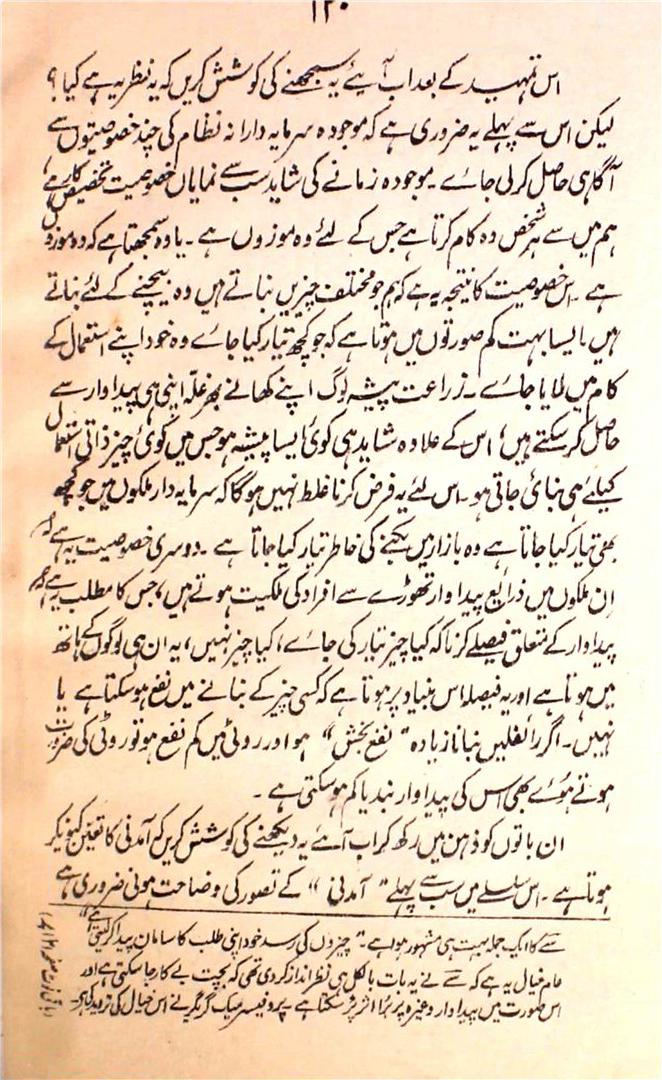 ۱۲۰
اس تمہید کے بعد اب آیئے یہ سمجھنے کی کوشش کریں کہ یہ نظریہ ہے کیا؟
لیکن اس سے پہلے یہ ضروری ہے کہ موجودہ سرمایہ دارانہ نظام کی چند خصوصیتوں سے
آگاہی حاصل کر لی جائے ۔ موجودہ زمانے کی شاید سب سے نمایاں خصوصیت تخصیص کار ہے،
ہم میں سے ہر شخص وہ کام کرتا ہے جس کے لئے وہ موزوں ہے ۔ یا وہ سمجھتا ہے کہ وہ موزوں
ہے ۔ اس خصوصیت کا نتیجہ یہ ہے کہ ہم جو مختلف چیزیں بناتے ہیں وہ بیچنے کے لئے بناتے
ہیں ۔ ایسا بہت کم صورتوں میں ہوتا ہے کہ جو کچھ تیار کیا جائے وہ خود اپنے استعمال کے
کام میں لایا جائے ۔ زراعت پیشہ لوگ اپنے کھانے بھر غلّہ اپنی ہی پیداوار سے
حاصل کر سکتے ہیں، اس کے علاوہ شاید ہی کوئی ایسا پیشہ ہو جس میں کوئی چیز ذاتی استعمال
کیلئے ہی بنائی جاتی ہو ۔ اس لئے یہ فرض کرنا غلط نہیں ہوگا کہ سرمایہ دار ملکوں میں جو کچھ
بھی تیار کیا جاتا ہے وہ بازار میں بکنے کی خاطر تیار کیا جاتا ہے ۔ دوسری خصوصیت یہ ہے کہ
ان ملکوں میں ذرایع پیداوار تھوڑے سے افراد کی ملکیت ہوتے ہیں، جس کا مطلب یہ ہے کہ
پیداوار کے متعلق فیصلے کرنا کہ کیا چیز تیار کی جائے، کیا چیز نہیں، یہ ان ہی لوگوں کے ہاتھ
میں ہوتا ہے اور یہ فیصلہ اس بنیاد پر ہوتا ہے کہ کسی چیز کے بنانے میں نفع ہو سکتا ہے یا
نہیں ۔ اگر رائفلیں بنانا زیادہ "نفع بخش" ہو اور روٹی میں کم نفع ہو تو روٹی کی ضرورت
ہوتے ہوئے بھی اس کی پیداوار بند یا کم ہو سکتی ہے ۔
ان باتوں کو ذہن میں رکھ کر اب آیئے یہ دیکھنے کی کوشش کریں کہ آمدنی کا تعین کیونکر
ہوتا ہے ۔ اس سلسلے میں سب سے پہلے "آمدنی" کے تصور کی وضاحت ہونی ضروری ہے
سے کا ایک جملہ بہت ہی مشہور ہوا ہے ۔ "چیزوں کی رسد خود اپنی طلب کا سامان پیدا کر لیتی ہے"
عام خیال یہ ہے کہ سے نے یہ بات بالکل ہی نظر انداز کر دی تھی کہ بچت بے کار جا سکتی ہے اور
اس صورت میں پیداوار وغیرہ پر برا اثر پڑ سکتا ہے ۔ پروفیسر میک گریگر نے اس خیال کی تردید کی ہے ۔